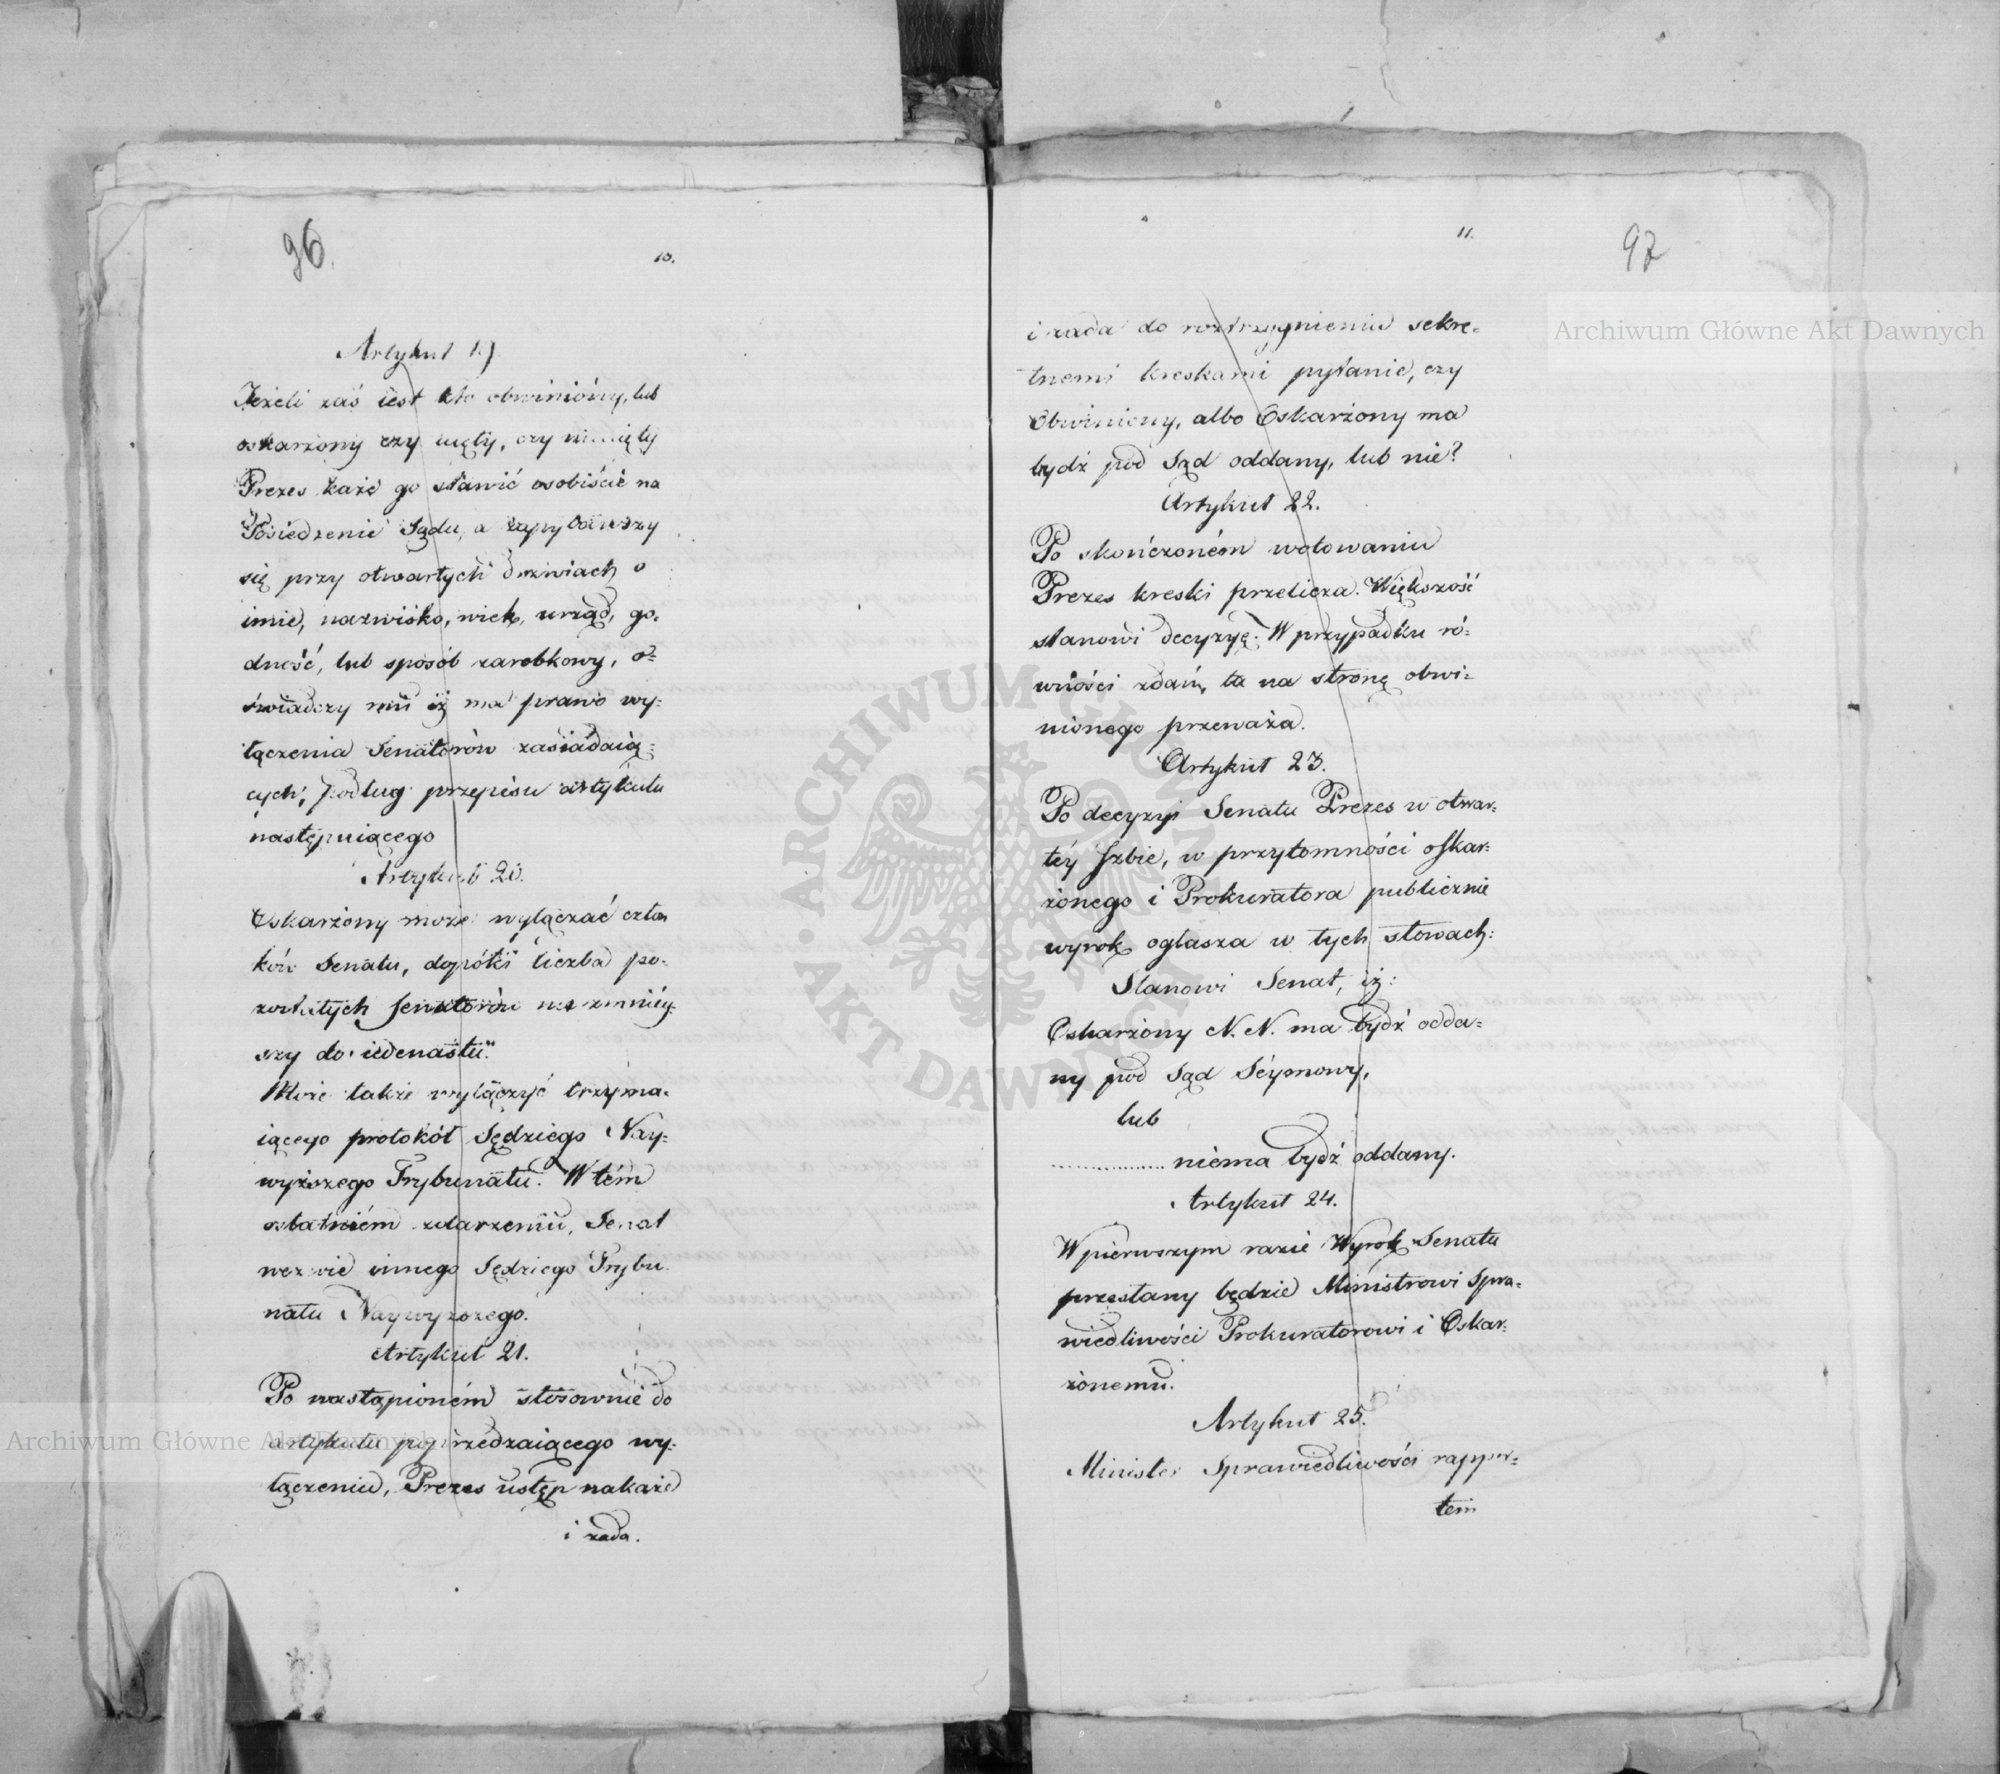 96.
10.
Artykuł 19.
Jeżeli zaś iest kto obwinióny, lub
oskarżony czy uięty, czy nieuięty
Prezes każe go stawić osobiście na
Posiedzenie Sądu, a zapytawszy
się przy otwartych drzwiach o
imie, nazwisko, wiek, urząd, go-
dność, lub sposób zarobkowy, o-
świadczy mu iż ma prawo wy-
łączenia Senatorów zasiadaią-
cych, podług przepisu artykułu
następuiącego
Artykuł 20.
Oskarżony może wyłączać człon
ków Senatu, dopóki liczba po-
zostałych Senatorów nie zmniéy-
szy do iedenastu.
Może także wyłączyć trzyma-
iącego protokół Sędziego Nay-
wyższego Trybunału. W tém
ostatniém zdarzeniu, Senat
wezwie innego Sędziego Trybu-
nału Naywyższego.
Artykuł 21.
Po nastąpioném stosownie do
artykułu poprzedzaiącego wy-
łączeniu, Prezes ustęp nakaże
i zada.
11.
97
i zada do roztrzygnieniu sekre-
tnemi kreskami pytanie, czy
Obwiniony, albo Oskarżony ma
bydź pod Sąd oddany, lub nie?
Artykuł 22.
Po skończoném wotowaniu
Prezes kreski przelicza. Większość
stanowi decyzyę. W przypadku ró-
wności zdań, ta na stronę obwi-
nionego przeważa.
Artykuł 23.
Po decyzyi Senatu Prezes w otwar-
téy Izbie, w przytomności oskar-
żonego i Prokuratora publicznie
wyrok ogłasza w tych słowach:
Stanowi Senat, iż:
Oskarżony N. N. ma bydź odda-
ny pod Sąd Séymowy,
lub
................ niema bydź oddany.
Artykuł 24.
W pierwszym razie Wyrok Senatu
przesłany będzie Ministrowi Spra-
wiedliwości Prokuratorowi i Oskar-
żonemu.
Artykuł 25.
Minister Sprawiedliwości rappor-
tem
Archiwum Główne Akt Dawnych
Archiwum Główne Akt Dawnych
ARCHIWUM GŁÓWNE • AKT DAWNYCH •